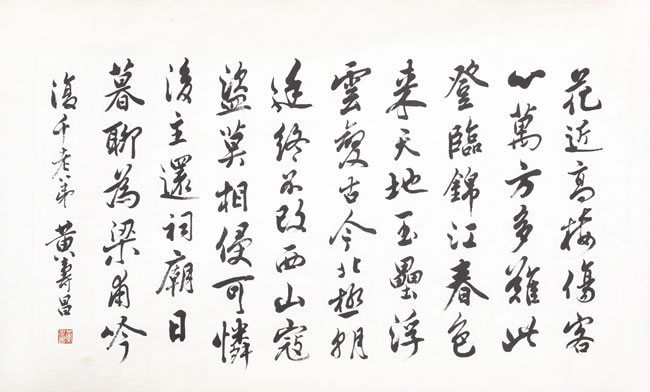 花近高楼傷客
心萬方多難此
登臨錦江春色
来天地玉壘浮
雲變古今北極朝
廷終不改西山寇
盜莫相侵可憐
後主還祠廟日
暮聊為梁甫吟
復千老弟
黄壽昌